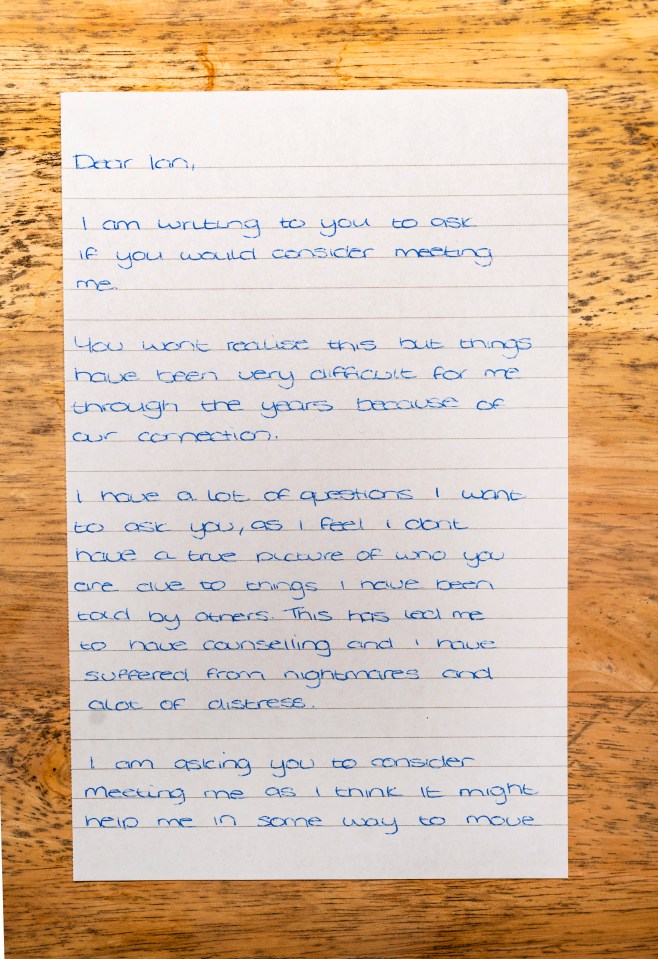 Dear Ian,
I am writing to you to ask
if you would consider meeting
me.
You wont realise this but things
have been very difficult for me
through the years because of
our connection.
I have a lot of questions I want
to ask you, as I feel I dont
have a true picture of who you
are due to things I have been
told by others. This has led me
to have counselling and I have
suffered from nightmares and
alot of distress.
I am asking you to consider
meeting me as I think it might
help me in some way to move